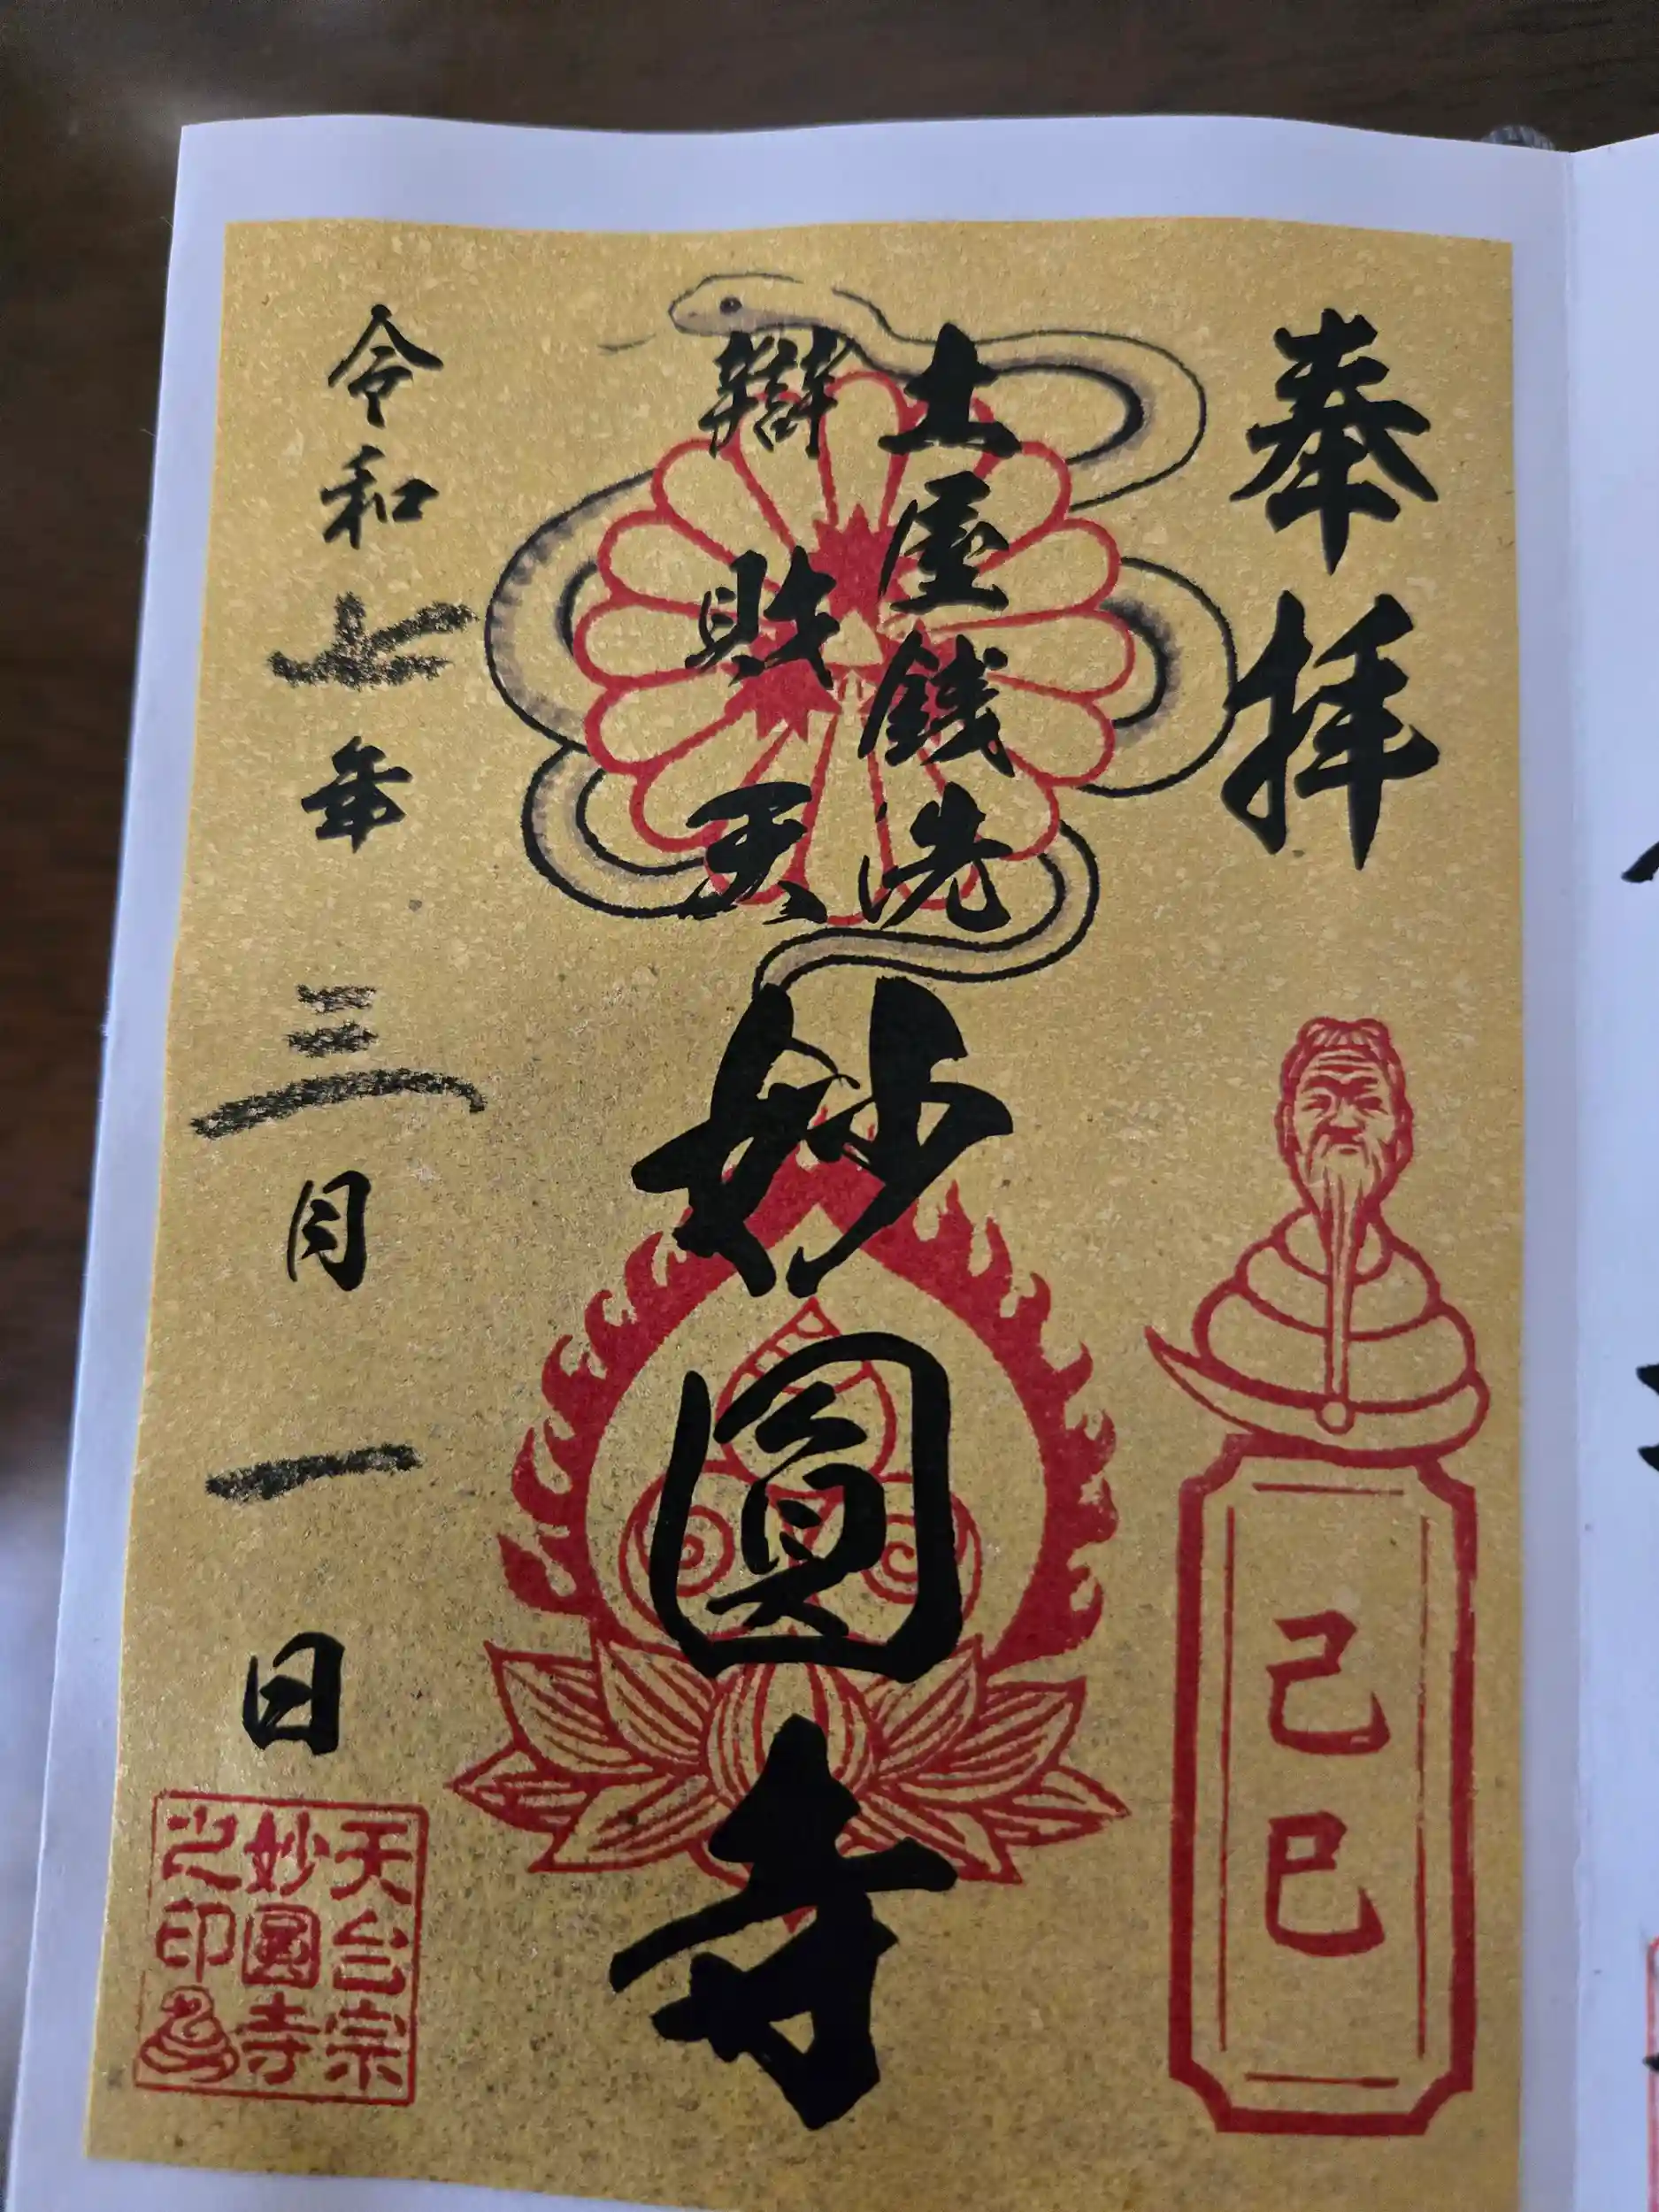 奉拝
己巳
土屋銭洗
辯財天
妙圓寺
令和七年三月一日
天台宗
妙圓寺
之印